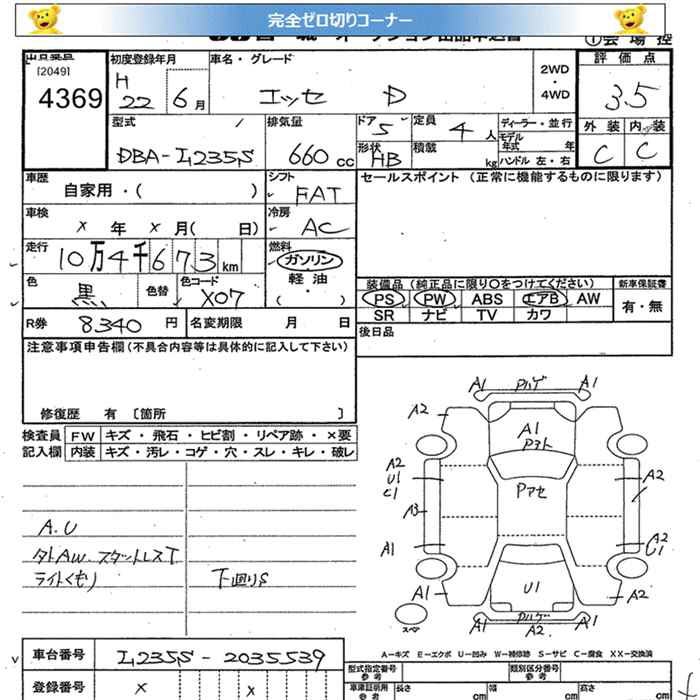 完全ゼロ切りコーナー
①会場控
[2049]
4369
初度登録年月
H 22 6月
車名・グレード
エッセ D
2WD
・
4WD
評価点
3.5
外装 内装
C C
型式
DBA-L235S
排気量
660 cc
ドア 5
定員 4人
形状 HB
積載 kg
ディーラー・並行
モデル年式 年
ハンドル 左・右
車歴
自家用・( )
シフト
FAT
セールスポイント (正常に機能するものに限ります)
車検
× 年 × 月( 日)
冷房
AC
走行
10万4千673km
燃料
ガソリン
軽油
・( )
色
黒
色替
色コード
X07
装備品 (純正品に限り○をつけてください)
PS PW ABS エアB AW
SR ナビ TV カワ
新車保証書
有・無
R券 8,340円
名変期限 月 日
後日品
注意事項申告欄(不具合内容等は具体的に記入して下さい)
修復歴 有〔箇所 〕
検査員記入欄
FW キズ・飛石・ヒビ割・リペア跡・×要
内装 キズ・汚レ・コゲ・穴・スレ・キレ・破レ
A.U
タトAW.スタットレスT
ライトくもり
下廻りS
A1 Pハゲ A1
A2
A1
Pヨト
A2
U1
C1
Pアセ
A2
A3
A1
A2
U1
A1
U1
A2
スペア
Pハゲ
A1 A2 A1
A-キズ E-エクボ U-凹み W-補修跡 S-サビ C-腐食 XX-交換済
車台番号
L235S-2035539
登録番号
× ×
型式指定番号
参考
類別区分番号
参考
車庫証明用
参考
長さ cm
幅 cm
高さ cm